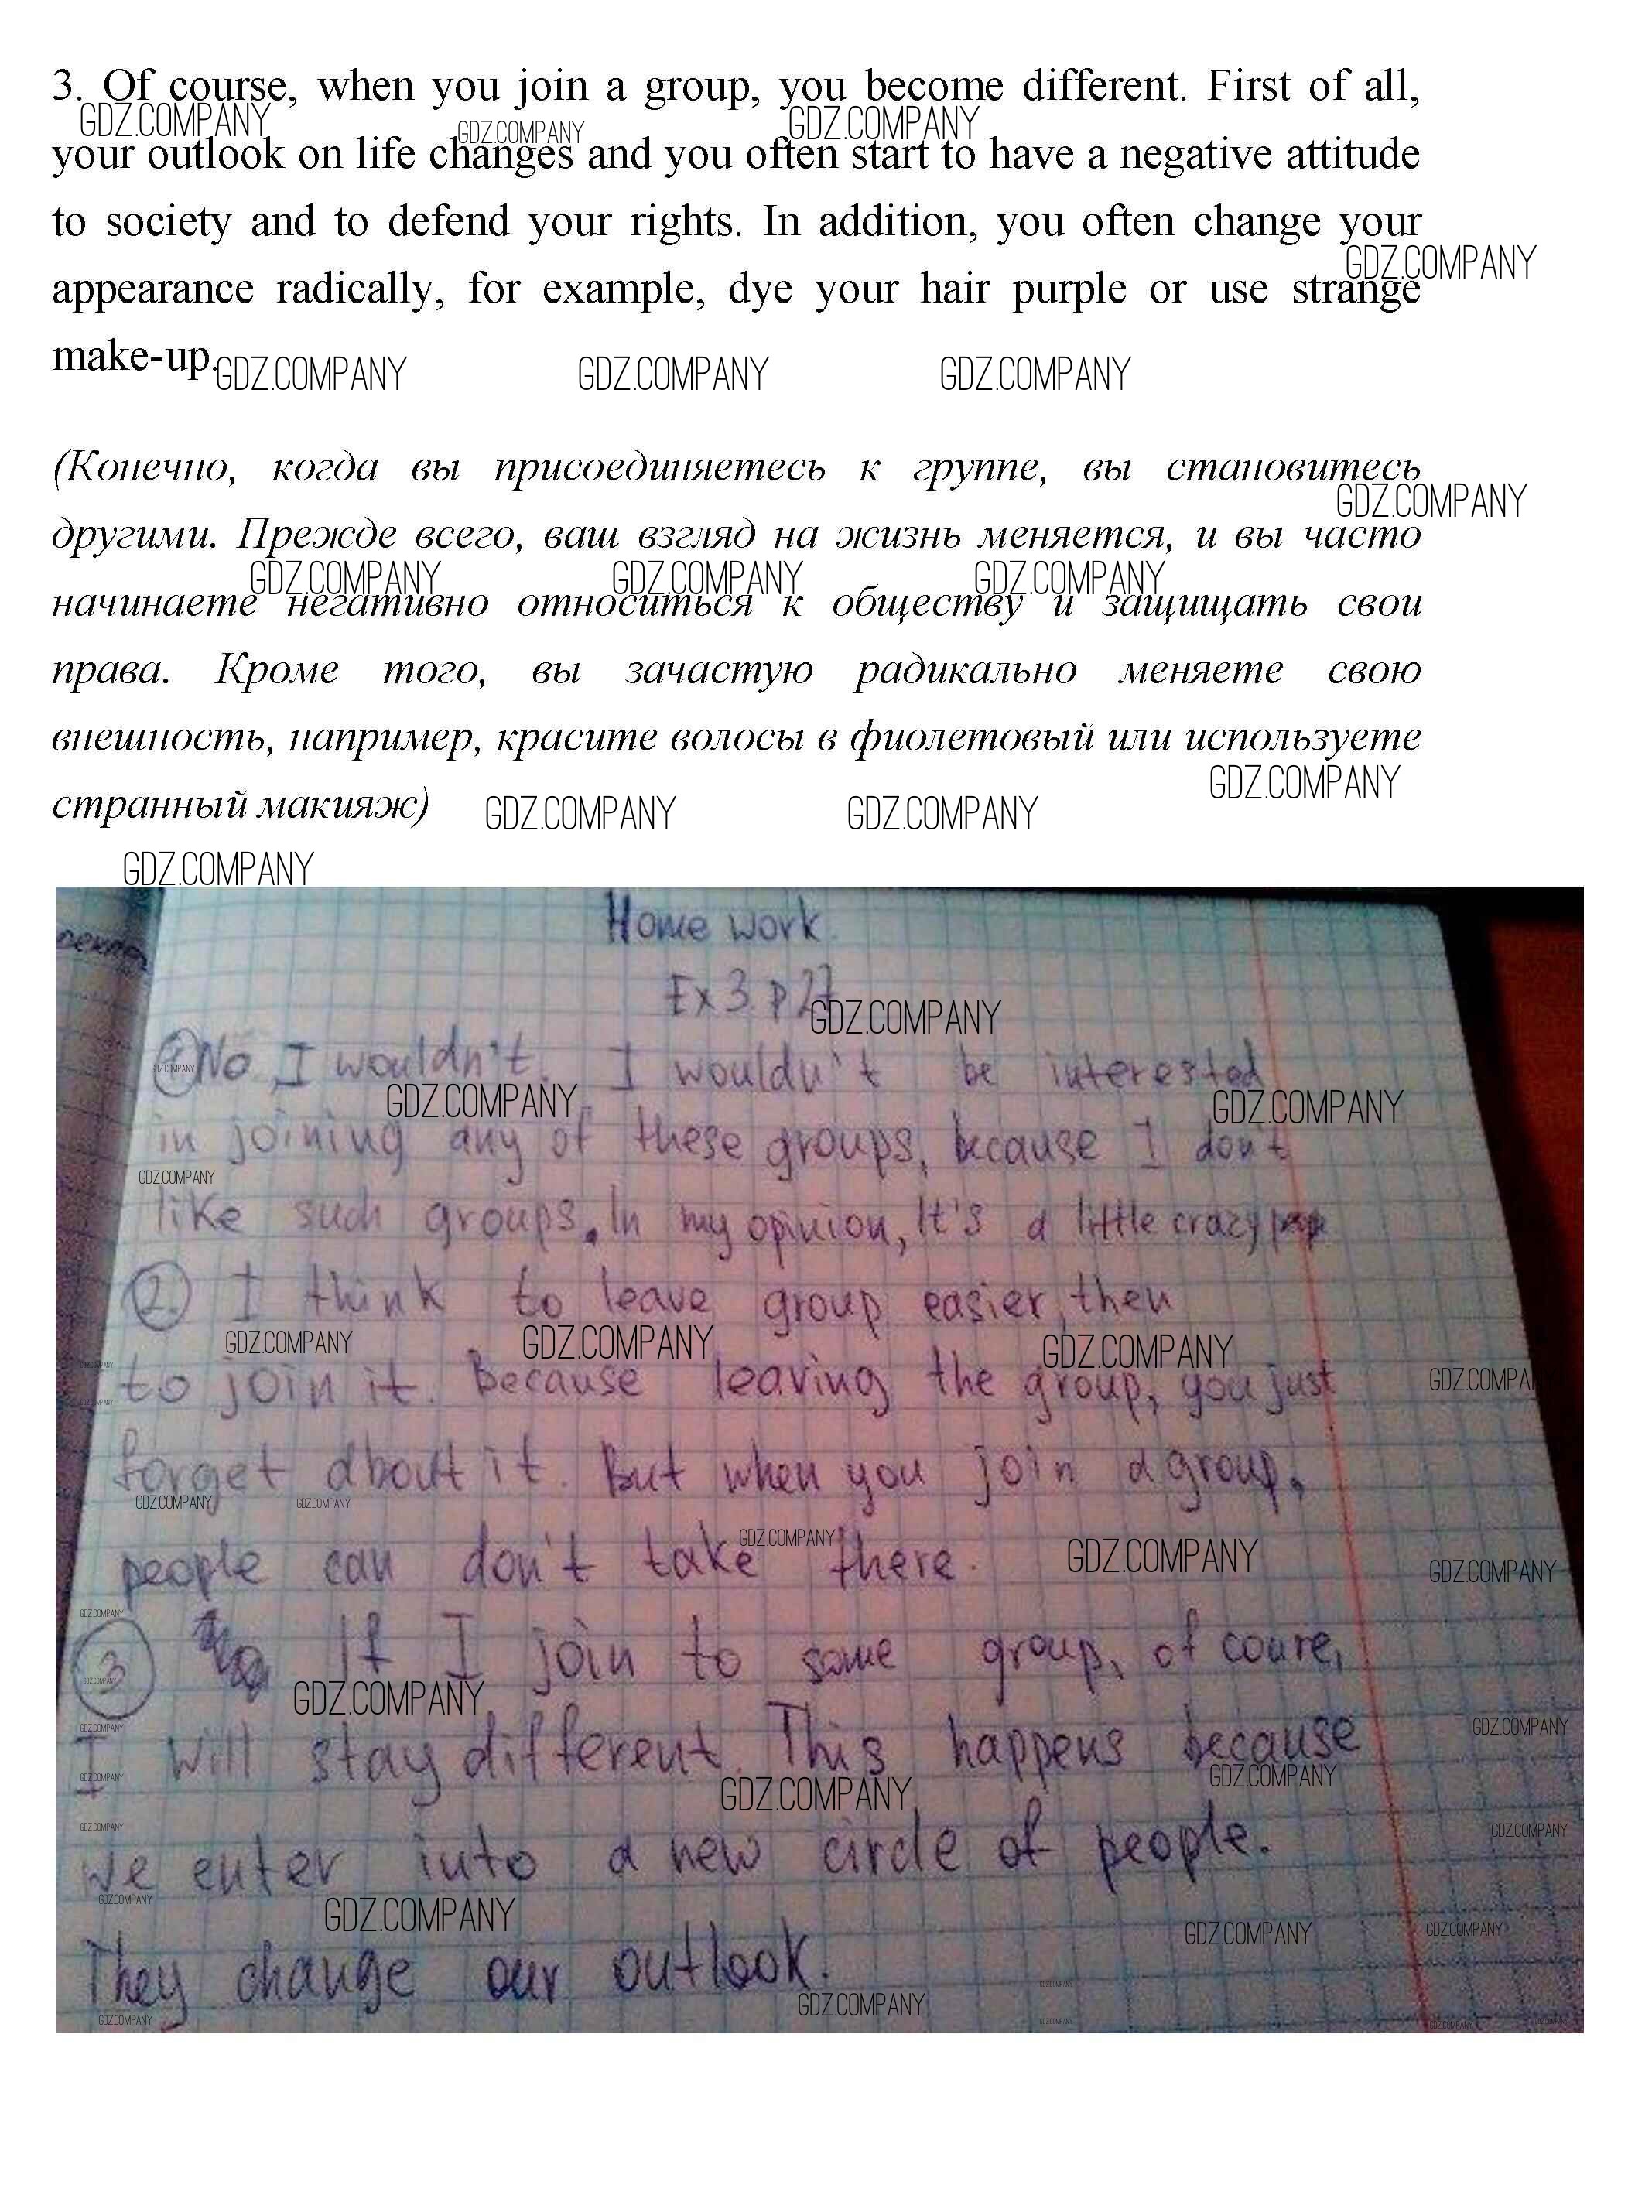 3. Of course, when you join a group, you become different. First of all,
your outlook on life changes and you often start to have a negative attitude
to society and to defend your rights. In addition, you often change your
appearance radically, for example, dye your hair purple or use strange
make-up.
(Конечно, когда вы присоединяетесь к группе, вы становитесь
другими. Прежде всего, ваш взгляд на жизнь меняется, и вы часто
начинаете негативно относиться к обществу и защищать свои
права. Кроме того, вы зачастую радикально меняете свою
внешность, например, красите волосы в фиолетовый или используете
странный макияж)
GDZ.COMPANY
Home work.
Ex 3. p 27
1 No, I wouldn't. I wouldn't be interested
in joining any of these groups, because I don't
like such groups. In my opinion, It's a little crazy
2. I think to leave group easier, then
to join it. Because leaving the group, you just
forget about it. But when you join a group,
people can don't take there.
3 If I join to some group, of coure,
I will stay different. This happens because
we enter into a new circle of people.
They change our outlook.